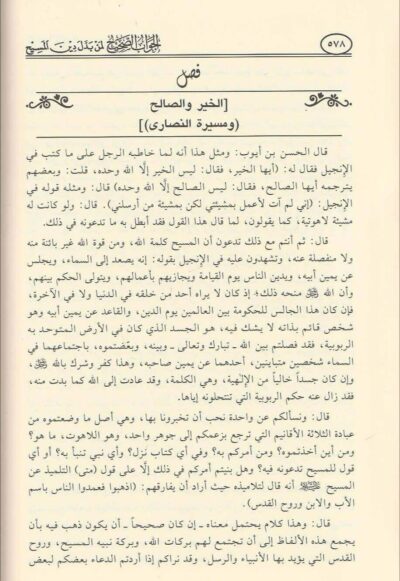 ٥٧٨
الجواب الصحيح لمن بدل دين المسيح
فصل
[الخير والصالح
(ومسيرة النصارى)]
قال الحسن بن أيوب: ومثل هذا أنه لما خاطبه الرجل على ما كتب في
الإنجيل فقال له: (أيها الخير، فقال: ليس الخير إلَّا الله وحده، قلت: وبعضهم
يترجمه أيها الصالح، فقال: ليس الصالح إلَّا الله وحده) قال: ومثله قوله في
الإنجيل: (إني لم آت لأعمل بمشيئتي لكن بمشيئة من أرسلني). قال: ولو كانت له
مشيئة لاهوتية، كما يقولون، لما قال هذا القول فقد أبطل به ما تدعونه في ذلك.
قال: ثم أنتم مع ذلك تدعون أن المسيح كلمة الله، ومن قوة الله غير بائنة منه
ولا منفصلة عنه، وتشهدون عليه في الإنجيل بقوله: إنه يصعد إلى السماء، ويجلس
عن يمين أبيه، ويدين الناس يوم القيامة ويجازيهم بأعمالهم، ويتولى الحكم بينهم،
وأن الله ﷻ منحه ذلك؛ إذ كان لا يراه أحد من خلقه في الدنيا ولا في الآخرة،
فإن كان هذا الجالس للحكومة بين العالمين يوم الدين، والقاعد عن يمين أبيه وهو
شخص قائم بذاته لا يشك فيه، هو الجسد الذي كان في الأرض المتوحد به
الربوبية، فقد فصلتم بين الله ـ تبارك وتعالى ـ وبينه، وبعّضتموه، باجتماعهما في
السماء شخصين متباينين، أحدهما عن يمين صاحبه، وهذا كفر وشرك بالله ﷻ،
وإن كان جسداً خالياً من الإلٰهية، وهي الكلمة، وقد عادت إلى الله كما بدت منه،
فقد زال عنه حكم الربوبية التي تنتحلونه إياها.
قال: ونسألكم عن واحدة نحب أن تخبرونا بها، وهي أصل ما وضعتموه من
عبادة الثلاثة الأقانيم التي ترجع بزعمكم إلى جوهر واحد، وهو اللاهوت، ما هو؟
ومن أين أخذتموه؟ ومن أمركم به؟ وفي أي كتاب نَزل؟ وأي نبي تنبأ به؟ أو أي
قول للمسيح تدعونه فيه؟ وهل بنيتم أمركم في ذلك إلَّا على قول (متى) التلميذ عن
المسيح أنه قال لتلاميذه حيث أراد أن يفارقهم: (اذهبوا فعمدوا الناس باسم
الآب والابن وروح القدس).
قال: وهذا كلام يحتمل معناه ـ إن كان صحيحاً ـ أن يكون ذهب فيه بأن
يجمع هذه الألفاظ إلى أن تجتمع لهم بركات الله، وبركة نبيه المسيح، وروح
القدس التي يؤيد بها الأنبياء والرسل، وقد نراكم إذا أردتم الدعاء بعضكم لبعض